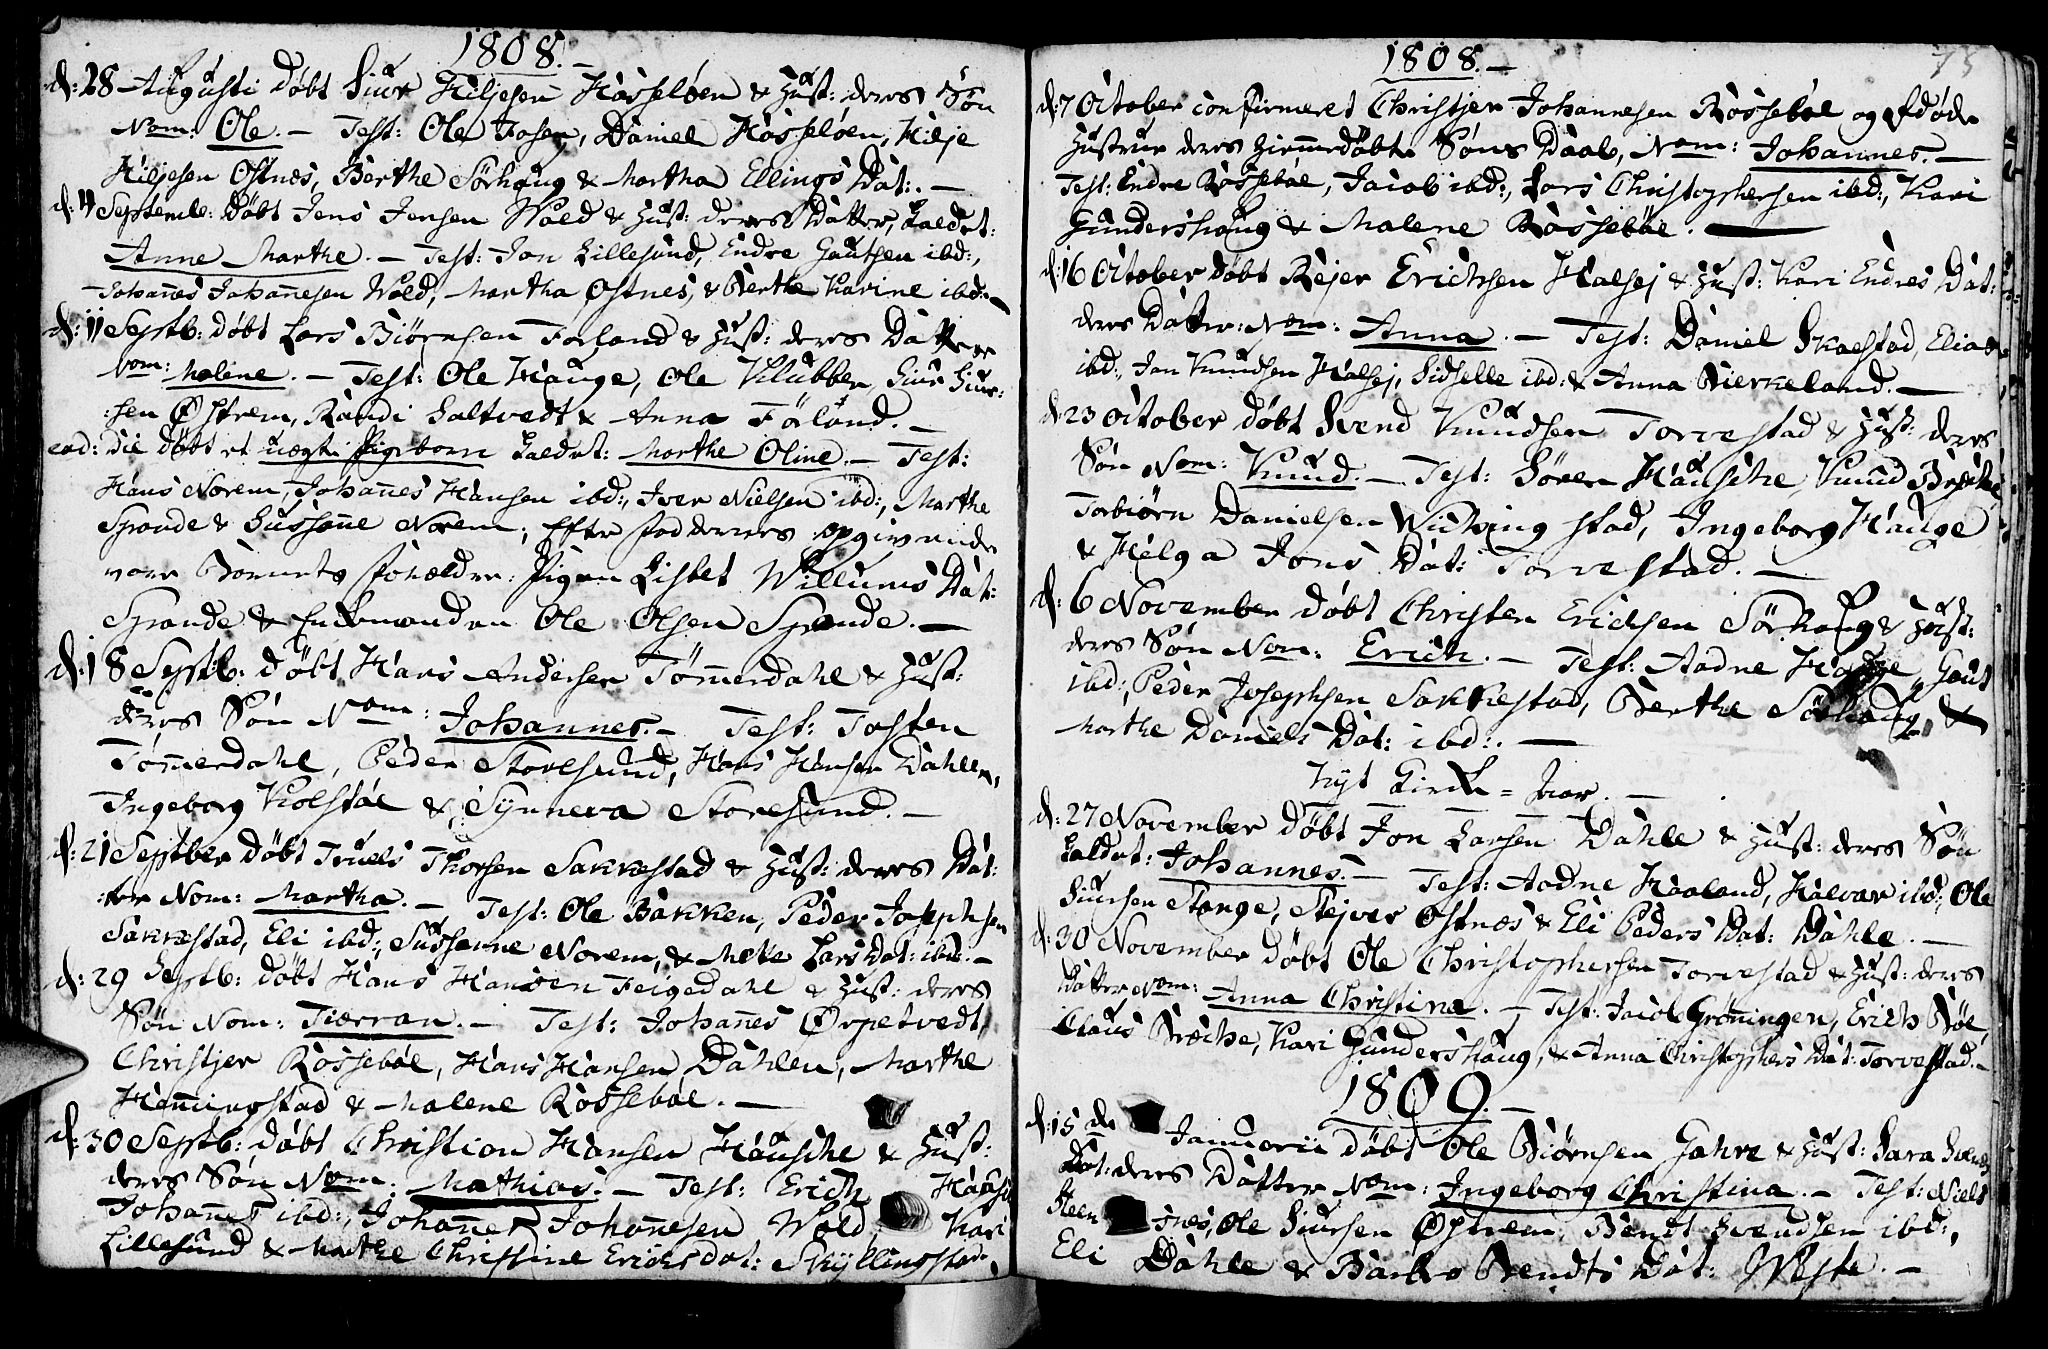 1808.-
d: 28 Augusti döbt Siur Hiljesen Hasseløen & Hust: deres Søn
Nom: Ole. - Test: Ole Fosen, Daniel Hasseløen, Hilje
Hiljesen Østnes, Berthe Sørhaug & Martha Ellings Dat:. -
d: 4 Septembr: Döbt Jens Jensen Wold & Hust: deres Datter, kaldet:
Anne Marthe. - Test: Jon Lillesund, Endre Gautsen ibd:,
Johañes Johañesen Wold, Martha Østnes, & Berthe Karine ibd:. -
d: 11 Septb: döbt Lars Biörnsen Forland & Hust: deres Datter
Nom: Malene. - Test: Ole Hauge, Ole Klubben, Siur Siur:
:sen Østrem, Randi Saltvedt & Anna Förland. -
eod: die döbt et uægte Pigebarn kaldet: Marthe Oline. - Test:
Hans Norem, Johañes Hansen ibd:, Iver Nielsen ibd:, Marthe
Spande & Sussañe Norem; Efter fadderenes opgivende
vare Barnets forældre: Pigen Lisbet Willums Dat:
Spande & Enkemanden Ole Olsen Spande. -
d: 18 Septb: döbt Hans Andersen Tömmerdahl & Hust:
deres Sön Nom: Johannes. - Test: Tosten
Tömmerdahl, Peder Storesund, Hans Hansen Dahlen,
Ingeborg Kolstöe & Synneva Storesund. -
d: 21 Septber döbt Truels Thorsen Sakkestad & Hust: deres Dat:
:ter Nom: Martha. - Test: Ole Bakken, Peder Josephsen
Sakkestad, Eli ibd:, Sussanne Norem, & Mette Lars Dat: ibd:. -
d: 29 Septb: döbt Hans Hansen Feigedahl & Hust: deres
Sön Nom: Tiærran. - Test: Johañes Ørpetvedt,
Christjer Rossebøe, Hans Hansen Dahlen, Marthe
Hemmingstad & Malene Rossebøe. -
d: 30 Septb: döbt Christian Hansen Hausche & Hust:
deres Sön Nom: Mathias. - Test: Erich
Johañes ibd:, Johañes Johañesen Wold, Kari
Lillesund & Marthe Christine Erichsdat: Skyllingstad.
1808. -
75
d: 7 October confirmeret Christjer Johannesen Rossebøe og
Hustrue deres hiemmedöbte Söns Daab, Nom: Johannes. -
Test: Endre Rossebøe, Jacob ibd:, Lars Christophersen ibd:, Kari
Gundershaug & Malene Rossebøe. -
d: 16 October döbt Rejer Erichsen Halsej & Hust: Kari Endres Dat:
deres Datter: Nom: Anna. - Test: Daniel Skaestad, Elias
ibd:, Jan Knudsen Halsej, Sidselle ibd: & Anna Bierkeland. -
d: 23 October döbt Svend Knudsen Torvestad & Hust: deres
Sön Nom: Knud. - Test: Sören Hausche, Knud Bræche,
Torbiörn Danielsen Widving stad, Ingeborg Hauge
& Helga Jons Dat: Torvestad. -
d: 6 November döbt Christen Erichsen Sörhaug & Hust:
deres Sön Nom: Erich. - Test: Aadne Hauge, Gaut
ibd:, Peder Josephsen Sakkestad, Berthe Sörhaug &
Marthe Daniels Dat: ibd:. -
Nyt Kirke-Aar. -
d: 27 November döbt Jon Larsen Dahle & Hust: deres Sön
kaldet: Johannes. - Test: Aadne Haaland, Halvar ibd:, Ole
Siursen Stange, Stejver Østnes & Eli Peders Dat: Dahle. -
d: 30 November döbt Ole Christophersen Torvestad & Hust: deres
Datter Nom: Anna Christina. - Test: Jacob Gröningen, Erich Bøe,
Claus Bræche, Kari Gundershaug, & Anna Christophers Dat: Torvestad. -
1809. -
d: 15 de Januarii döbt Ole Biörnsen Gahre & Hust: Sara Svends
Dat: deres Datter Nom: Ingeborg Christina. - Test: Niels
Steen snes, Ole Siursen Østrem, Bendt Svendsen ibd:,
Eli Dahle & Barbro Bendts Dat: Wiste. -